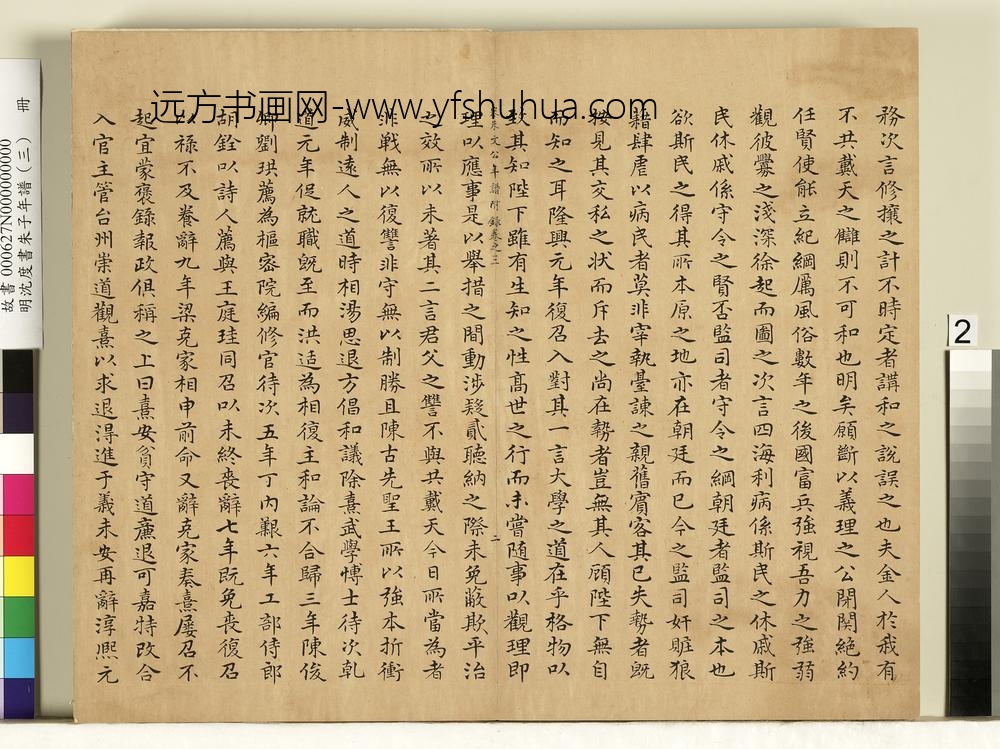 远方书画网-www.yfshuhua.com
務次言修攘之計不時定者講和之說誤之也夫金人於我有
不共戴天之讎則不可和也明矣願斷以義理之公閉関絶約
任賢使能立紀綱厲風俗數年之後國富兵強視吾力之強弱
觀彼釁之淺深徐起而圖之次言四海利病係斯民之休戚斯
民休戚係守令之賢否監司者守令之綱朝廷者監司之本也
欲斯民之得其所本原之地亦在朝廷而已今之監司奸賍狼
藉肆虐以病民者莫非宰執臺諫之親舊賓客其已失勢者旣
按見其交私之状而斥去之尚在勢者豈無其人顧陛下無自
而知之耳隆興元年復召入對其一言大學之道在乎格物以
致其知陛下雖有生知之性髙世之行而未嘗随事以觀理即
朱文公年譜附録卷之三
二
理以應事是以舉措之間動涉疑貳聽納之際未免蔽欺平治
之效所以未著其二言君父之讐不與共戴天今日所當為者
非戰無以復讐非守無以制勝且陳古先聖王所以強本折衝
威制逺人之道時相湯思退方倡和議除熹武學博士待次乹
道元年促就職旣至而洪适為相復主和論不合歸三年陳俊
卿劉珙薦為樞宻院編修官待次五年丁内艱六年工部侍郎
胡銓以詩人薦與王庭珪同召以未終喪辭七年既免喪復召
以禄不及養辭九年梁克家相申前命又辭克家奏熹屢召不
起宜蒙褒錄報政俱稱之上曰熹安貧守道廉退可嘉特改合
入官主管台州崇道觀熹以求退淂進于義未安再辭淳熈元
冊
故書000627N000000000
明沈度書朱子年譜（三）
2